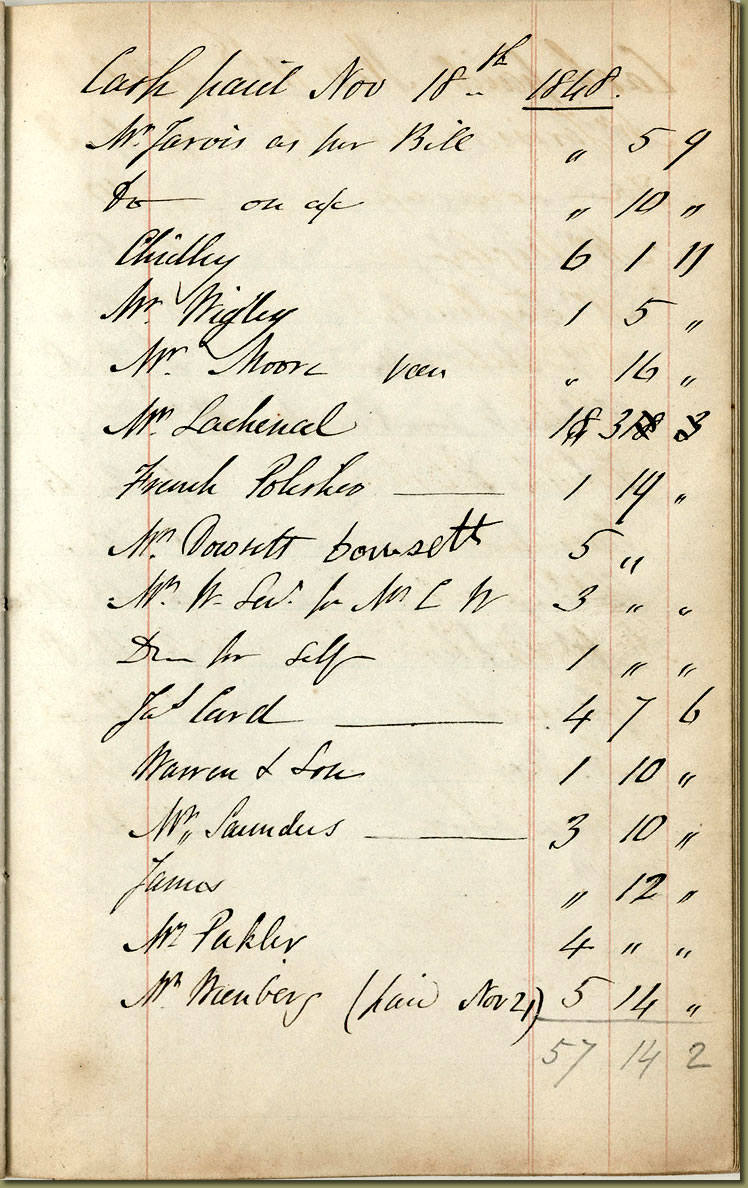 Cash paid Nov 18th 1848.
Mr Jarvis as per Bill " 5 9
Do on a/c " 10 "
Chidley 6 1 11
Mr Wigley 1 5 "
Mr Moore " 16 "
Mr Lachenal 18 3
French Polisher 1 19 "
Mr Dowsett Dowsett 5 "
Mr W. Senr. for Mr C W 3 " "
Do for Self 1 " "
Jas Card 4 7 6
Warren & Son 1 10 "
Mr Saunders 3 10 "
James " 12 "
Mr Pukler 4 " "
Mr (paid Nov 21) 5 14 "
57 14 2